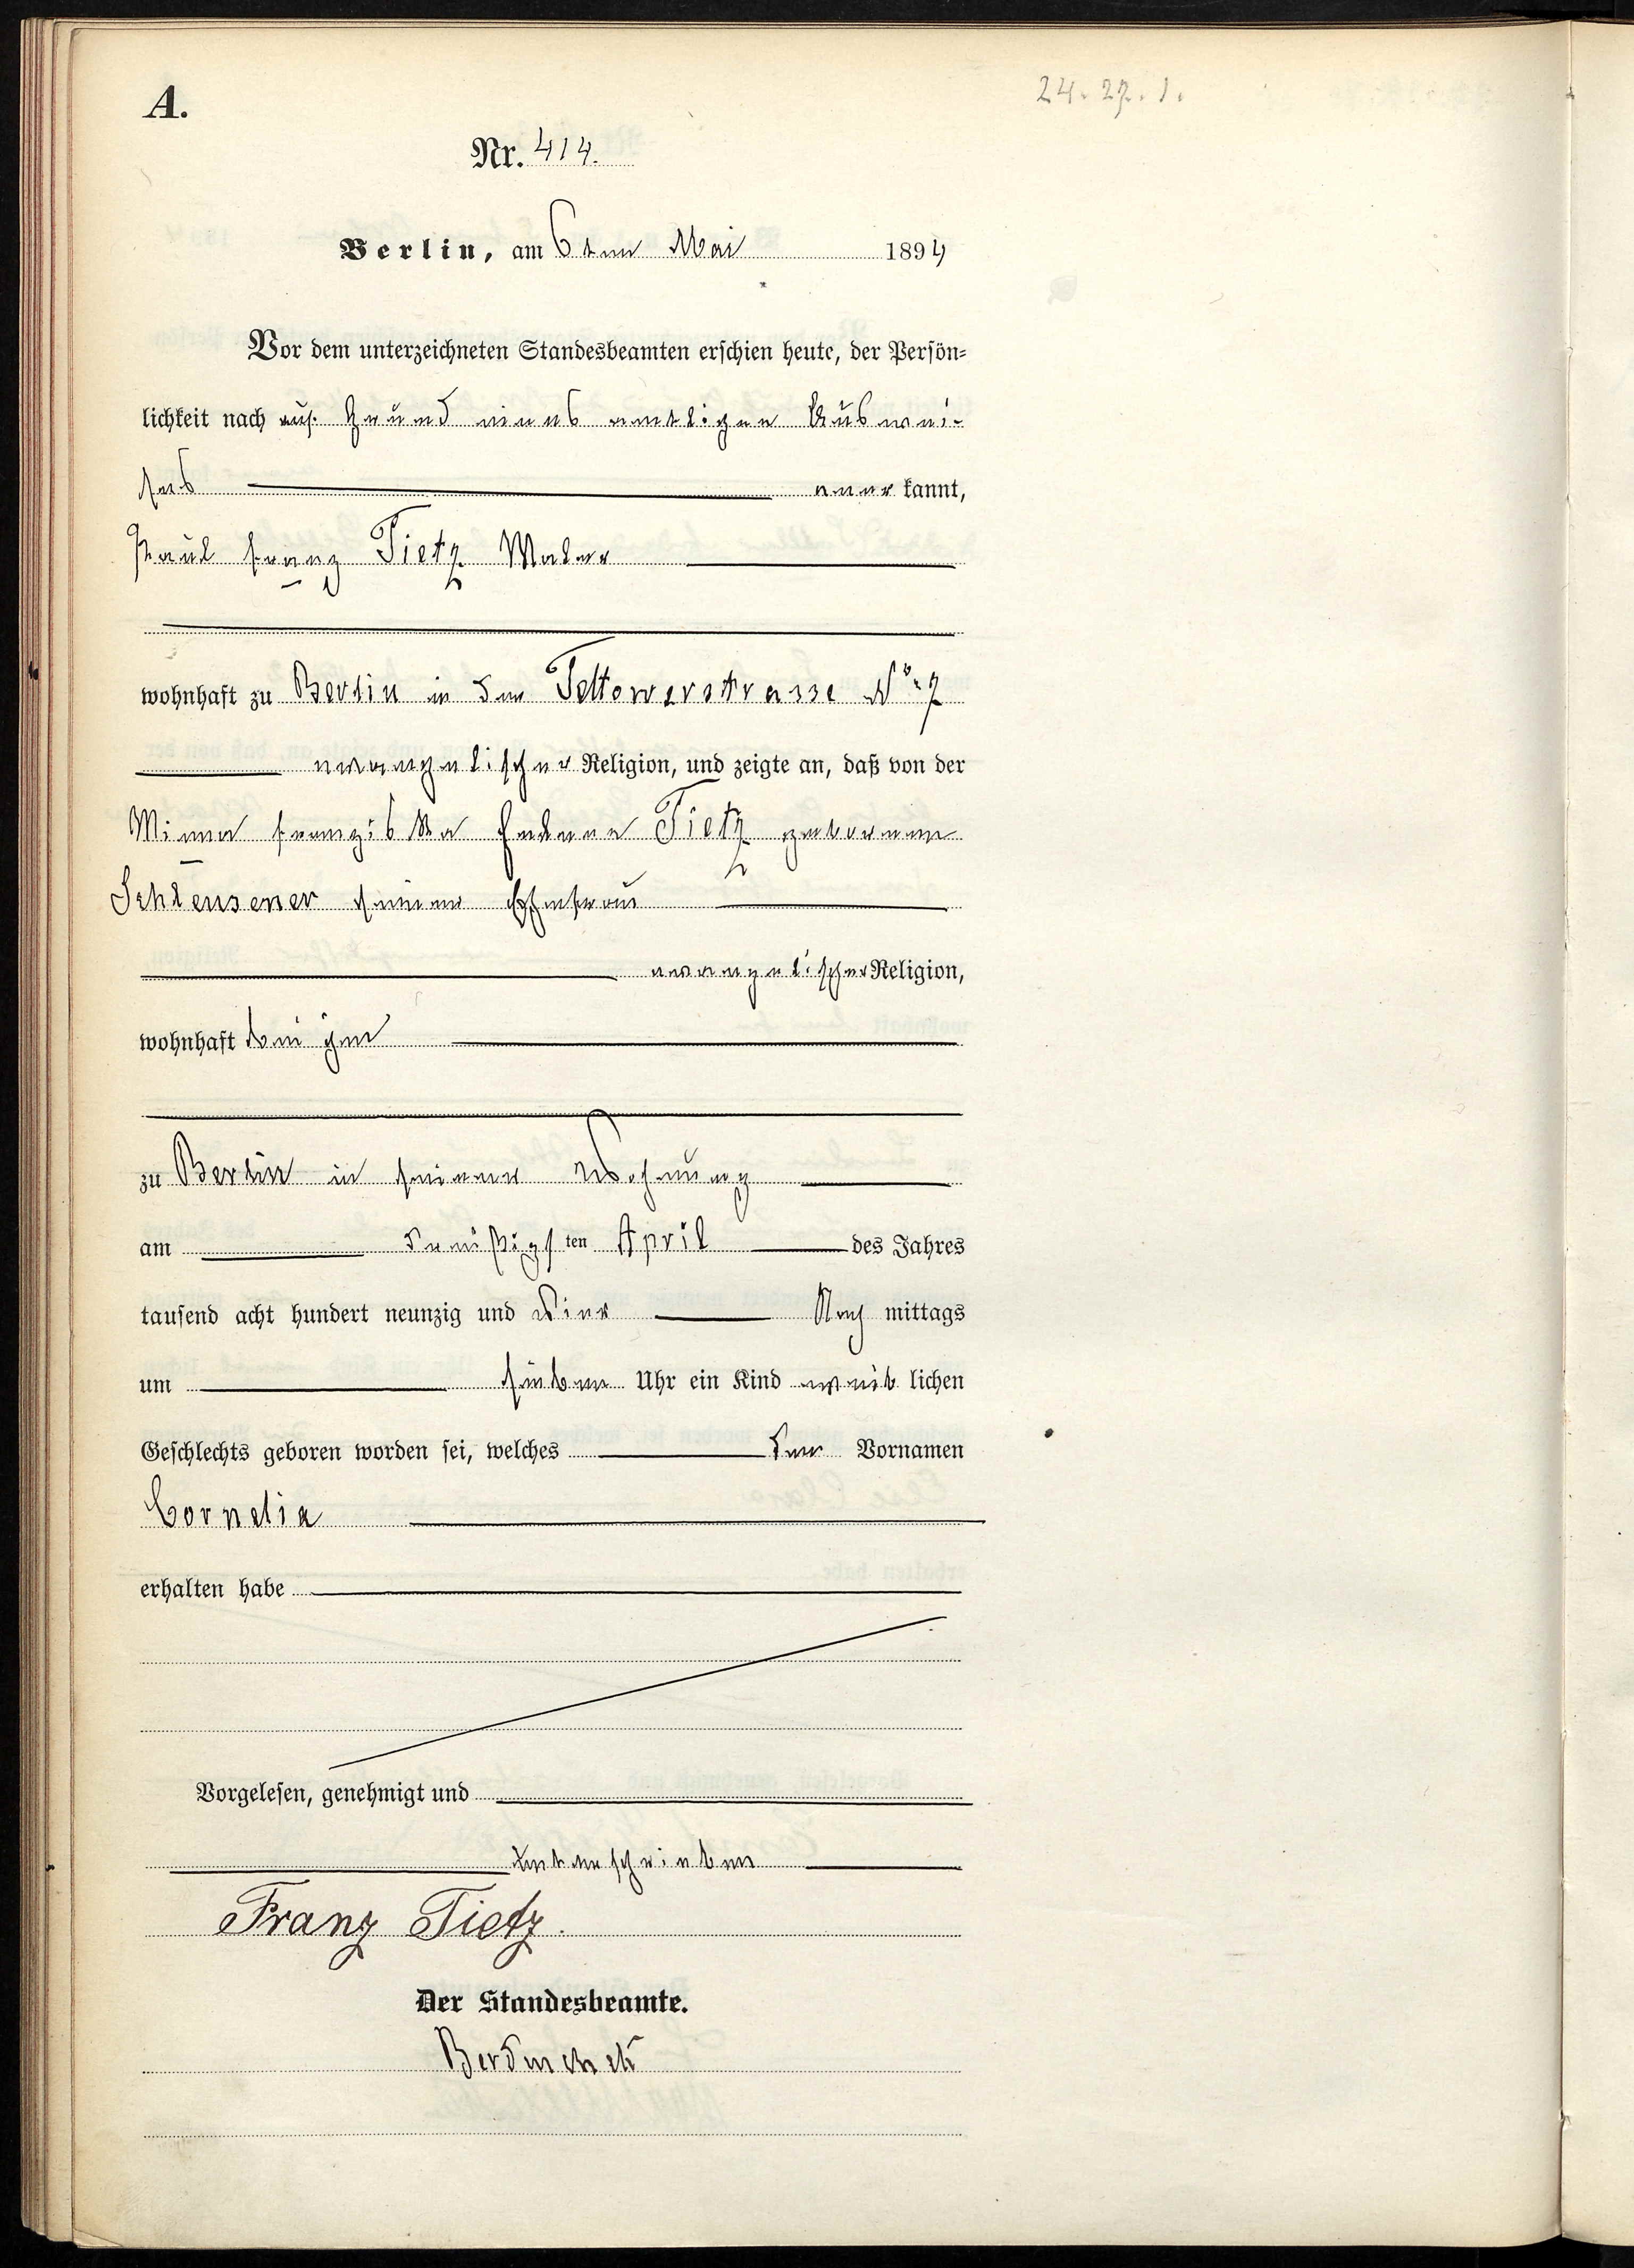 24. 27. 1.
A.
Nr. 414.
Berlin, am 6ten Mai 1894
Vor dem unterzeichneten Standesbeamten erschien heute, der Persön=
lichkeit nach auf Grund eines amtlichen Auswei-
ses anerkannt,
Paul Franz Tietz Maler
wohnhaft zu Berlin in der Teltowerstrasse No 7
evangelischer Religion, und zeigte an, daß von der
Minna Franziska Helene Tietz geborenen
Schleusener seiner Ehefrau
evangelischer Religion,
wohnhaft bei ihm
zu Berlin in seiner Wohnung
am dreißigsten April des Jahres
tausend acht hundert neunzig und vier Nachmittags
um sieben Uhr ein Kind weiblichen
Geschlechts geboren worden sei, welches den Vornamen
Cornelia
erhalten habe
Vorgelesen, genehmigt und
unterschrieben
Franz Tietz.
Der Standesbeamte.